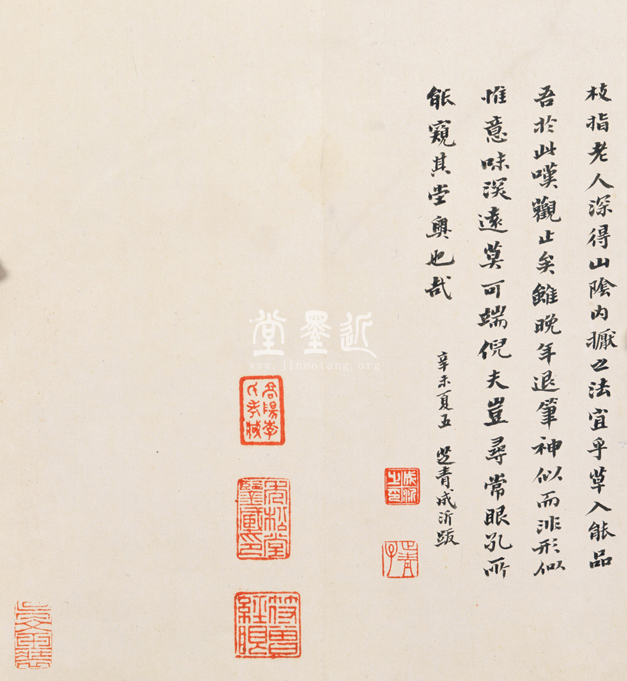 枝指老人深得山陰內擫之法宜乎草入能品
吾於此嘆觀止矣雖晚年退筆神似而非形似
惟意味深遠莫可端倪夫豈尋常眼孔所
能窺其堂奧也哉
辛未夏五 芝青成沂跋
成沂之印
符曾經眼
近墨堂
www.jinmotang.org